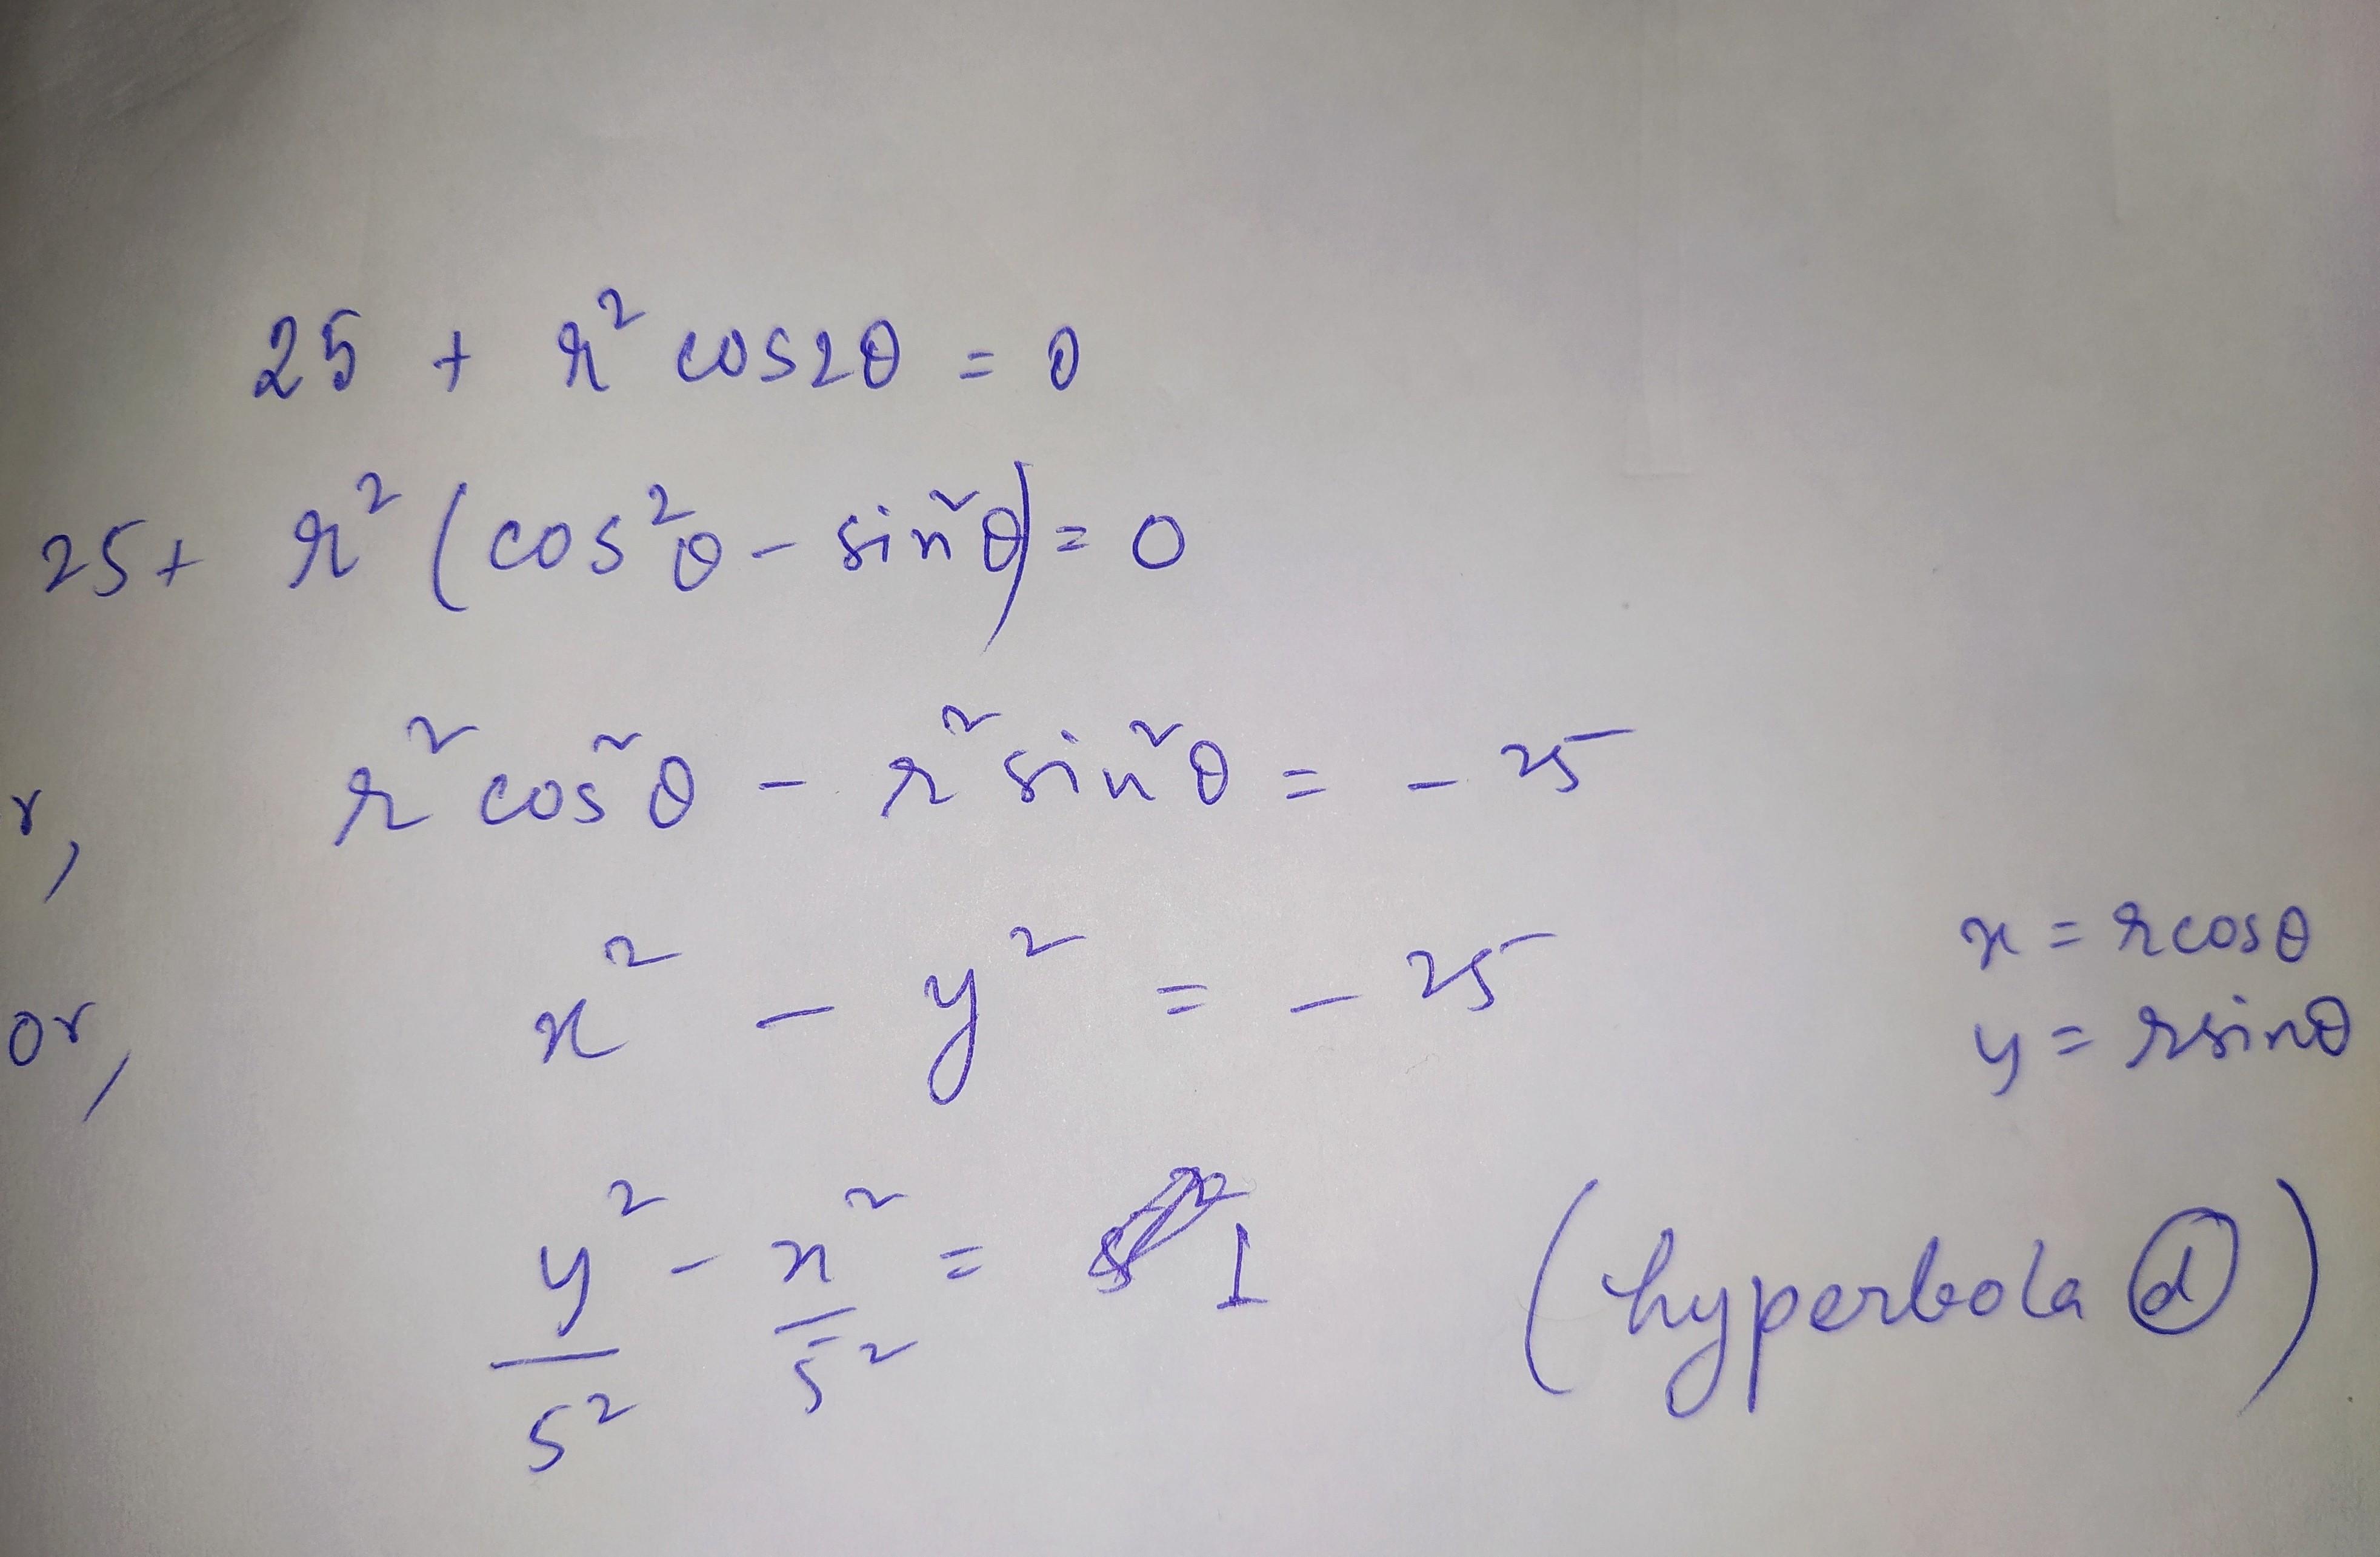 25 + r² cos2θ = 0
25 + r² (cos²θ - sin²θ) = 0
r, r² cos²θ - r² sin²θ = - 25
or, x² - y² = - 25
x = rcosθ
y = rsinθ
y²/5² - x²/5² = 1 (hyperbola ⓓ)